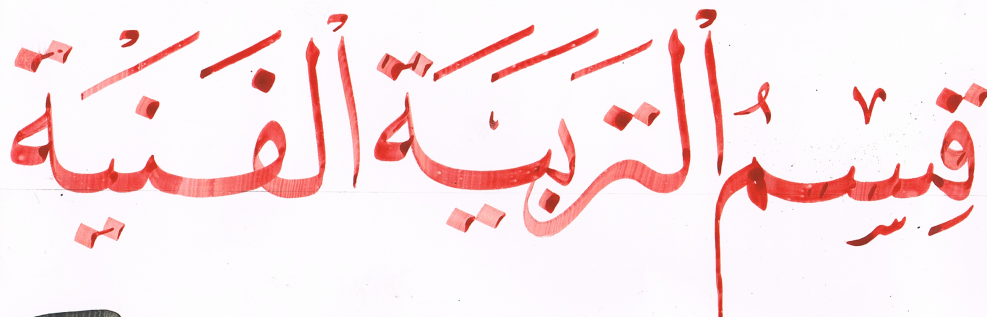 قِسْم ألتَربيَة ألفَنيَّة